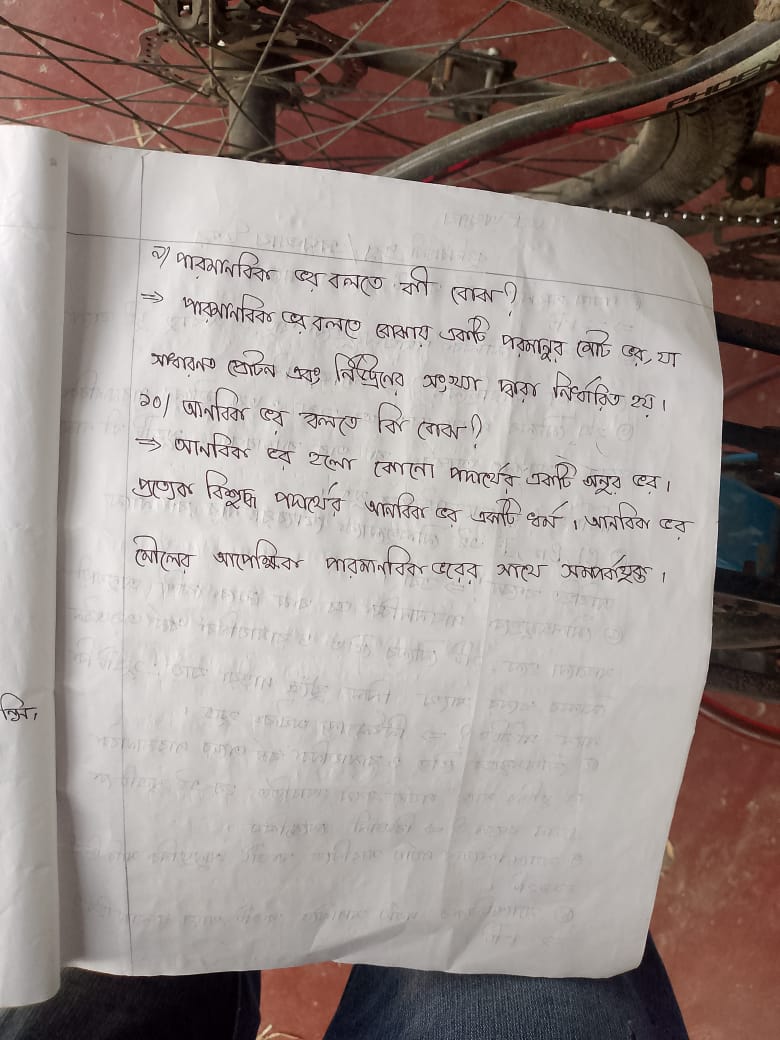 PHOEN
৯) পারমানবিক ভর বলতে কী বোঝ?
⇒ পারমানবিক ভর বলতে বোঝায় একটি পরমানুর মোট ভর, যা
সাধারনত প্রোটন এবং নিউট্রনের সংখ্যা দ্বারা নির্ধারিত হয়।
১০) আনবিক ভর বলতে কি বোঝ?
⇒ আনবিক ভর হলো কোনো পদার্থের একটি অনুর ভর।
প্রত্যেক বিশুদ্ধ পদার্থের আনবিক ভর একটি ধর্ম। আনবিক ভর
মৌলের আপেক্ষিক পারমানবিক ভরের সাথে সম্পর্কযুক্ত।